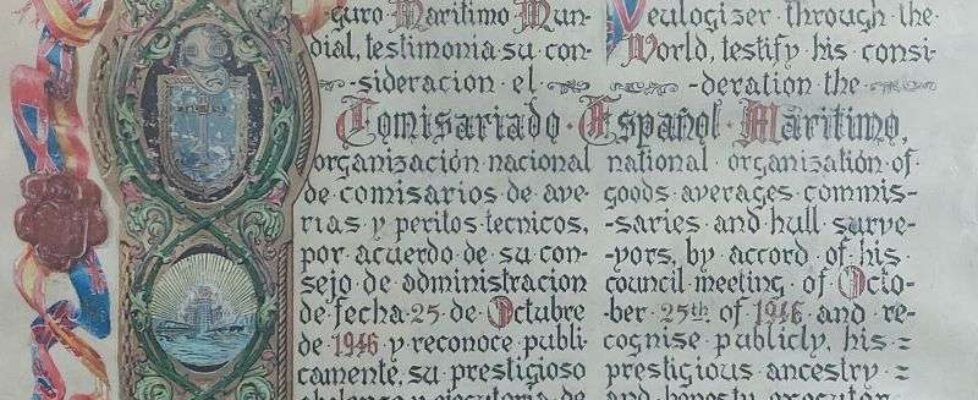 guro Maritimo Mun-
dial, testimonia su con-
-sideracion el
Comisariado Español Maritimo,
organización nacional
de comisarios de ave-
rias y peritos tecnicos,
por acuerdo de su con-
sejo de administracion
de fecha 25 de Octubre
de 1946 y reconoce publi-
camente, su prestigioso
y ejecutoria de
eulogizer through the
World, testify his consi-
-deration the
national organization of
goods averages commis-
-saries and hull surve-
-yors, by accord of his
council meeting of Octo-
-ber 25th of 1946 and re-
cognise publicly, his =
prestigious ancestry =
and honesty executor